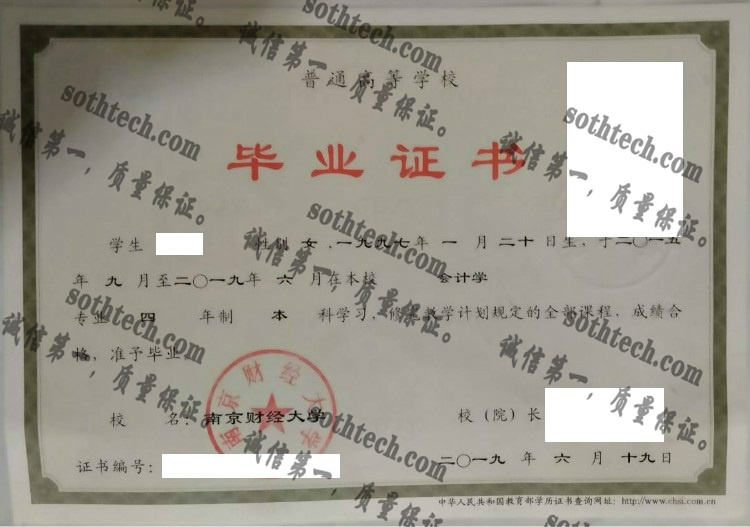 普通高等学校
毕业证书
学生 性别 女,一九九七年 一 月 二十 日生,于二〇一五
年 九 月至二〇一九年 六 月在本校 会计学
专业 四 年制 本 科学习,修完教学计划规定的全部课程,成绩合
格,准予毕业。
校 名:南京财经大学 校(院)长
证书编号: 二〇一九 年 六 月 十九 日
中华人民共和国教育部学历证书查询网址:http://www.chsi.com.cn
南京财经大学
sothtech.com
诚信第一,质量保证。
sothtech.com
诚信第一,质量保证。
sothtech.com
诚信第一,质量保证。
sothtech.com
诚信第一,质量保证。
sothtech.com
诚信第一,质量保证。
sothtech.com
诚信第一,质量保证。
sothtech.com
诚信第一,质量保证。